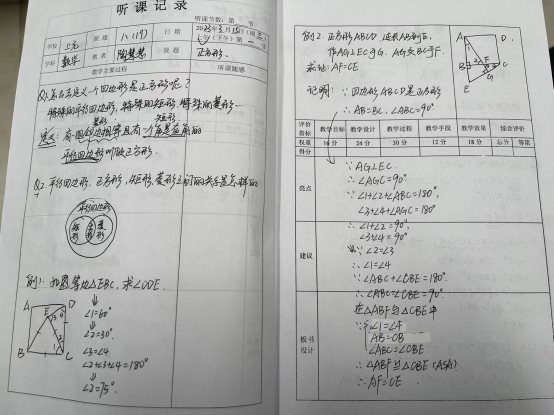 听课记录
听课节数: 第 节
学校 上元 班级 八(19) 日期 2023年3月15日(周三)
上午(下午)第 节
学科 数学 教者 课题 正方形.
教学主要过程 听课随感
Q1 怎么去定义一个四边形是正方形呢?
特殊的平行四边形, 特殊的矩形, 特殊的菱形…
菱形 矩形
定义: 有一组邻边相等且有一个角是直角的
平行四边形叫做正方形.
Q2 平行四边形、正方形、矩形、菱形之间的关系是怎样的
平行四边形
矩形 正方形 菱形
例1: 如图等边△EBC, 求∠CDE.
A D
E
B C
∠1=60°
∠2=30°
∠3=∠4
∠2+∠3+∠4=180°
∠2=75°
例2. 正方形ABCD 延长AB到E,
作AG⊥EC于G. AG交BC于F.
求证: AF=CE
A D
B F C
G
E
证明: ∵四边形ABCD是正方形
∴AB=BC, ∠ABC=90°
评价指标 教学目标 教学设计 教学过程 教学手段 教学效果 综合评价
权重 16分 24分 30分 12分 18分 总分 等第
得分
亮点
∵AG⊥EC
∴∠AGC=90°
∵∠1+∠2+∠ABC=180°
∠3+∠4+∠AGC=180°
建议
∴∠1+∠2=90°
∠3+∠4=90°
∵∠2=∠3
∴∠1=∠4
∵∠ABC+∠CBE=180°
∴∠ABC=∠CBE=90°
板书设计
在△ABF与△CBE中
∵∠1=∠4
AB=CB
∠ABC=∠CBE
∴△ABF≌△CBE(ASA)
∴AF=CE